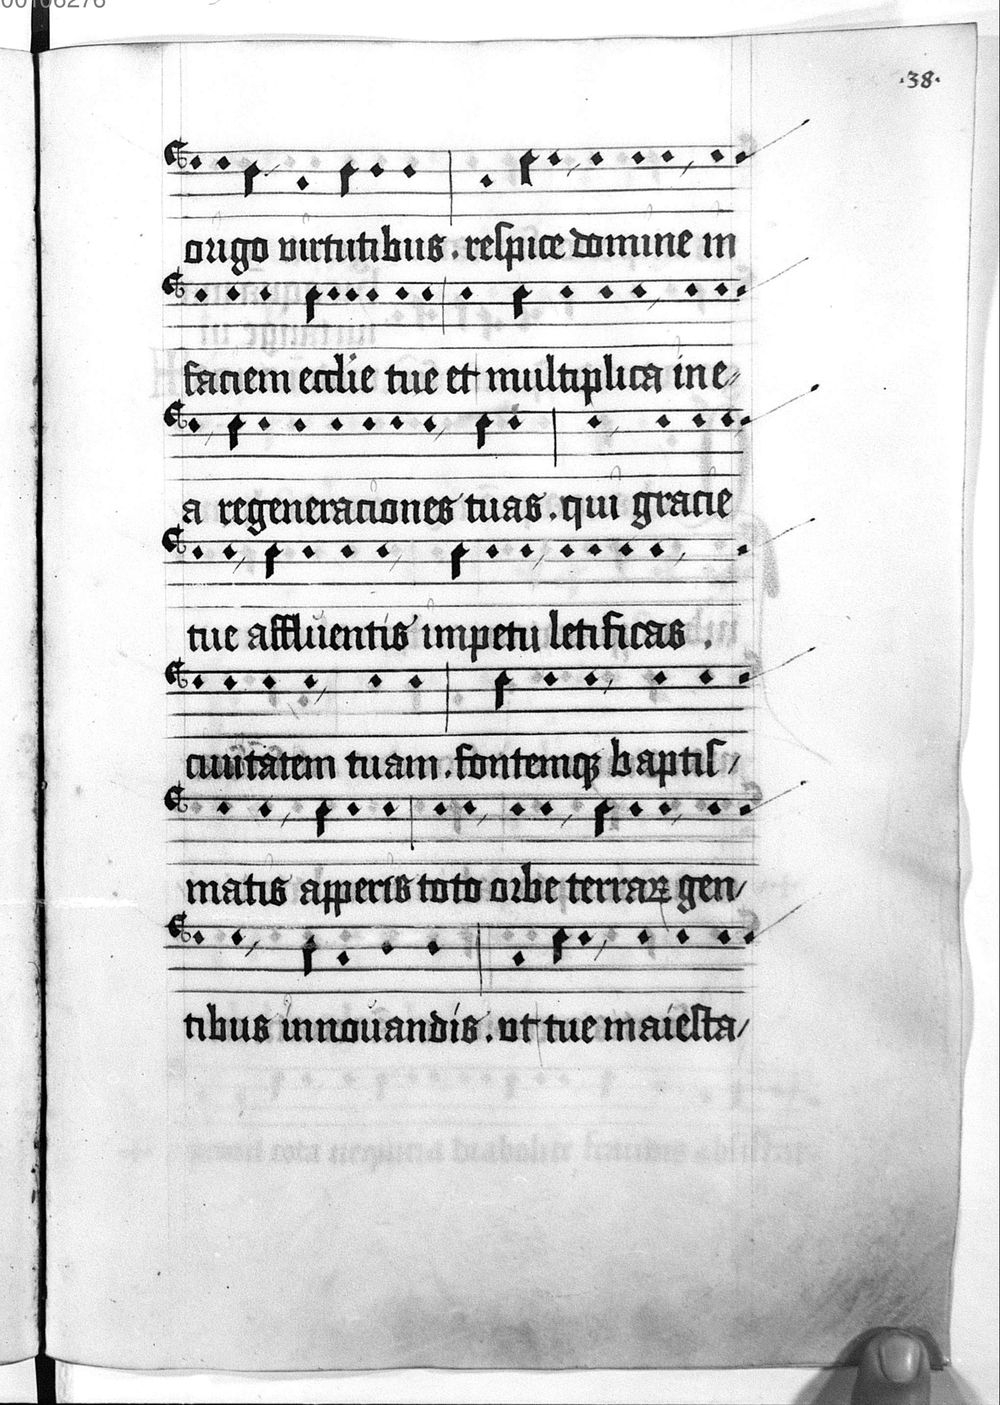 00106276
·38·
origo virtutibus . respice domine in
faciem ecclie tue et multiplica in e
a regeneraciones tuas . qui gracie
tue affluentis impetu letificas .
ciuitatem tuam . fontemqꝫ baptis
matis apperis toto orbe terraꝝ gen
tibus innouandis . vt tue maiesta